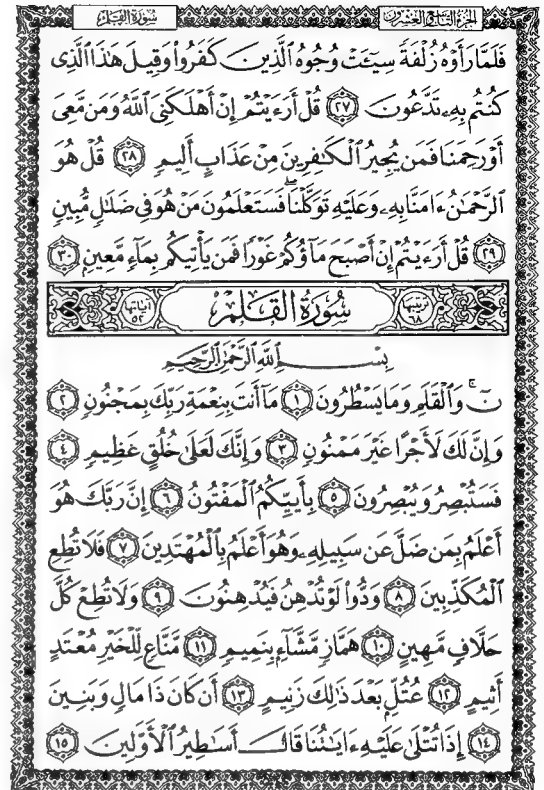 الجزء التاسع والعشرون سورة القلم
فَلَمَّا رَأَوْهُ زُلْفَةً سِيٓـَٔتْ وُجُوهُ ٱلَّذِينَ كَفَرُوا۟ وَقِيلَ هَٰذَا ٱلَّذِى
كُنتُم بِهِۦ تَدَّعُونَ ٢٧ قُلْ أَرَءَيْتُمْ إِنْ أَهْلَكَنِىَ ٱللَّهُ وَمَن مَّعِىَ
أَوْ رَحِمَنَا فَمَن يُجِيرُ ٱلْكَٰفِرِينَ مِنْ عَذَابٍ أَلِيمٍ ٢٨ قُلْ هُوَ
ٱلرَّحْمَٰنُ ءَامَنَّا بِهِۦ وَعَلَيْهِ تَوَكَّلْنَا ۖ فَسَتَعْلَمُونَ مَنْ هُوَ فِى ضَلَٰلٍ مُّبِينٍ
٢٩ قُلْ أَرَءَيْتُمْ إِنْ أَصْبَحَ مَآؤُكُمْ غَوْرًا فَمَن يَأْتِيكُم بِمَآءٍ مَّعِينٍۭ ٣٠
ترتيبها ٦٨ سُورَةُ القَلَمِ آياتها ٥٢
بِسْمِ ٱللَّهِ ٱلرَّحْمَٰنِ ٱلرَّحِيمِ
نٓ ۚ وَٱلْقَلَمِ وَمَا يَسْطُرُونَ ١ مَآ أَنتَ بِنِعْمَةِ رَبِّكَ بِمَجْنُونٍ ٢
وَإِنَّ لَكَ لَأَجْرًا غَيْرَ مَمْنُونٍ ٣ وَإِنَّكَ لَعَلَىٰ خُلُقٍ عَظِيمٍ ٤
فَسَتُبْصِرُ وَيُبْصِرُونَ ٥ بِأَييِّكُمُ ٱلْمَفْتُونُ ٦ إِنَّ رَبَّكَ هُوَ
أَعْلَمُ بِمَن ضَلَّ عَن سَبِيلِهِۦ وَهُوَ أَعْلَمُ بِٱلْمُهْتَدِينَ ٧ فَلَا تُطِعِ
ٱلْمُكَذِّبِينَ ٨ وَدُّوا۟ لَوْ تُدْهِنُ فَيُدْهِنُونَ ٩ وَلَا تُطِعْ كُلَّ
حَلَّافٍ مَّهِينٍ ١٠ هَمَّازٍ مَّشَّآءٍۭ بِنَمِيمٍ ١١ مَّنَّاعٍ لِّلْخَيْرِ مُعْتَدٍ
أَثِيمٍ ١٢ عُتُلٍّۭ بَعْدَ ذَٰلِكَ زَنِيمٍ ١٣ أَن كَانَ ذَا مَالٍ وَبَنِينَ
١٤ إِذَا تُتْلَىٰ عَلَيْهِ ءَايَٰتُنَا قَالَ أَسَٰطِيرُ ٱلْأَوَّلِينَ ١٥